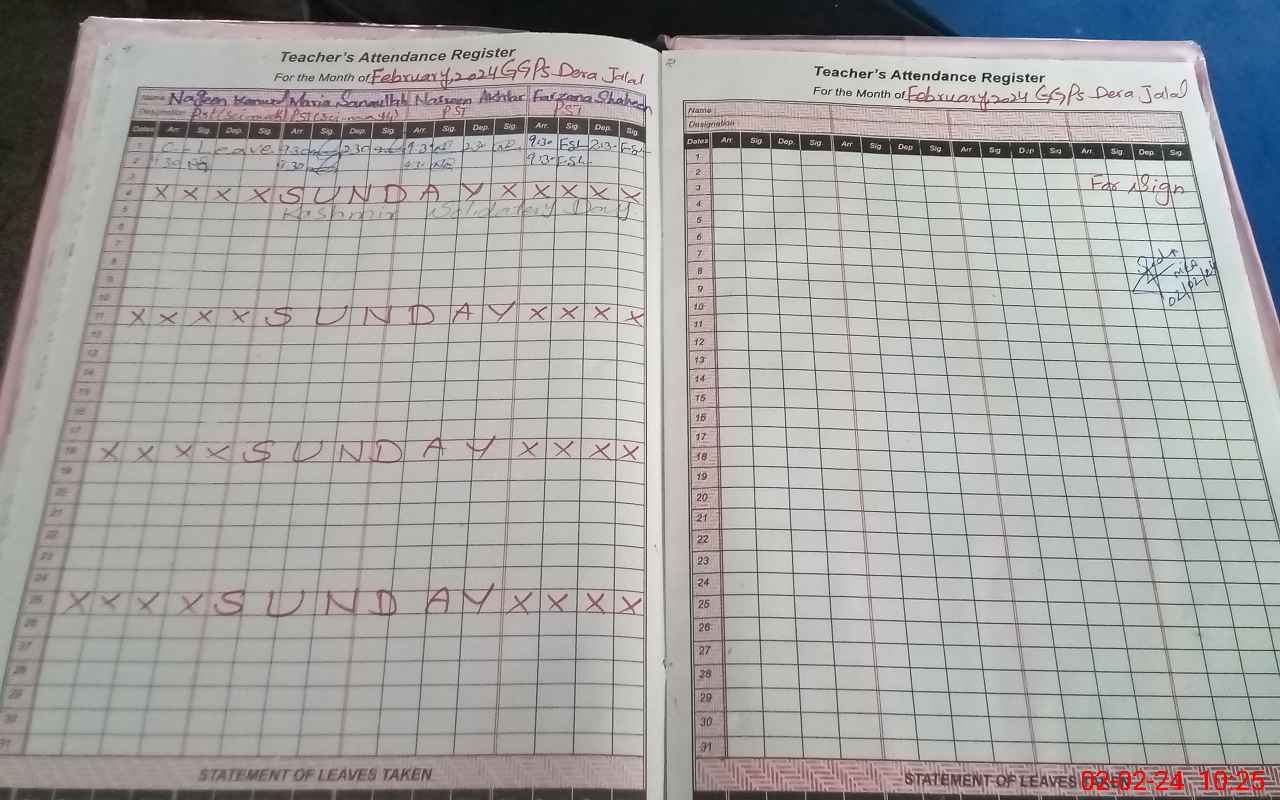 Teacher's Attendance Register
For the Month of February, 2024 GGPS Dera Jalal
Name Nageen Kanwal Maria Sanaullah Nasreen Akhtar Farzana Shaheen
Designation PST (sci-math) PST (sci-math) PST PST
Dates Arr. Sig. Dep. Sig. Arr. Sig. Dep. Sig. Arr. Sig. Dep. Sig. Arr. Sig. Dep. Sig.
1 C-Leave 9:30 2:30 9:30 2:30 9:30 FSL 2:30 FSL
2 9:30 9:30 9:30 9:30 FSL
3
4 X X X X S U N D A Y X X X X X
5 Kashmir Solidatery Day
6
7
8
9
10
11 X X X X S U N D A Y X X X X
12
13
14
15
16
17
18 X X X X S U N D A Y X X X X
19
20
21
22
23
24
25 X X X X S U N D A Y X X X X
26
27
28
29
30
31
STATEMENT OF LEAVES TAKEN
Teacher's Attendance Register
For the Month of February 2024 GGPS Dera Jalal
Name :
Designation :
Dates Arr. Sig. Dep. Sig. Arr. Sig Dep. Sig. Arr. Sig. Dep Sig. Arr. Sig. Dep. Sig.
1
2
3 For Sign
4
5
6
7
8 MEA
9 02/02/24
10
11
12
13
14
15
16
17
18
19
20
21
22
23
24
25
26
27
28
29
30
31
STATEMENT OF LEAVES TAKEN
02-02-24 10:25